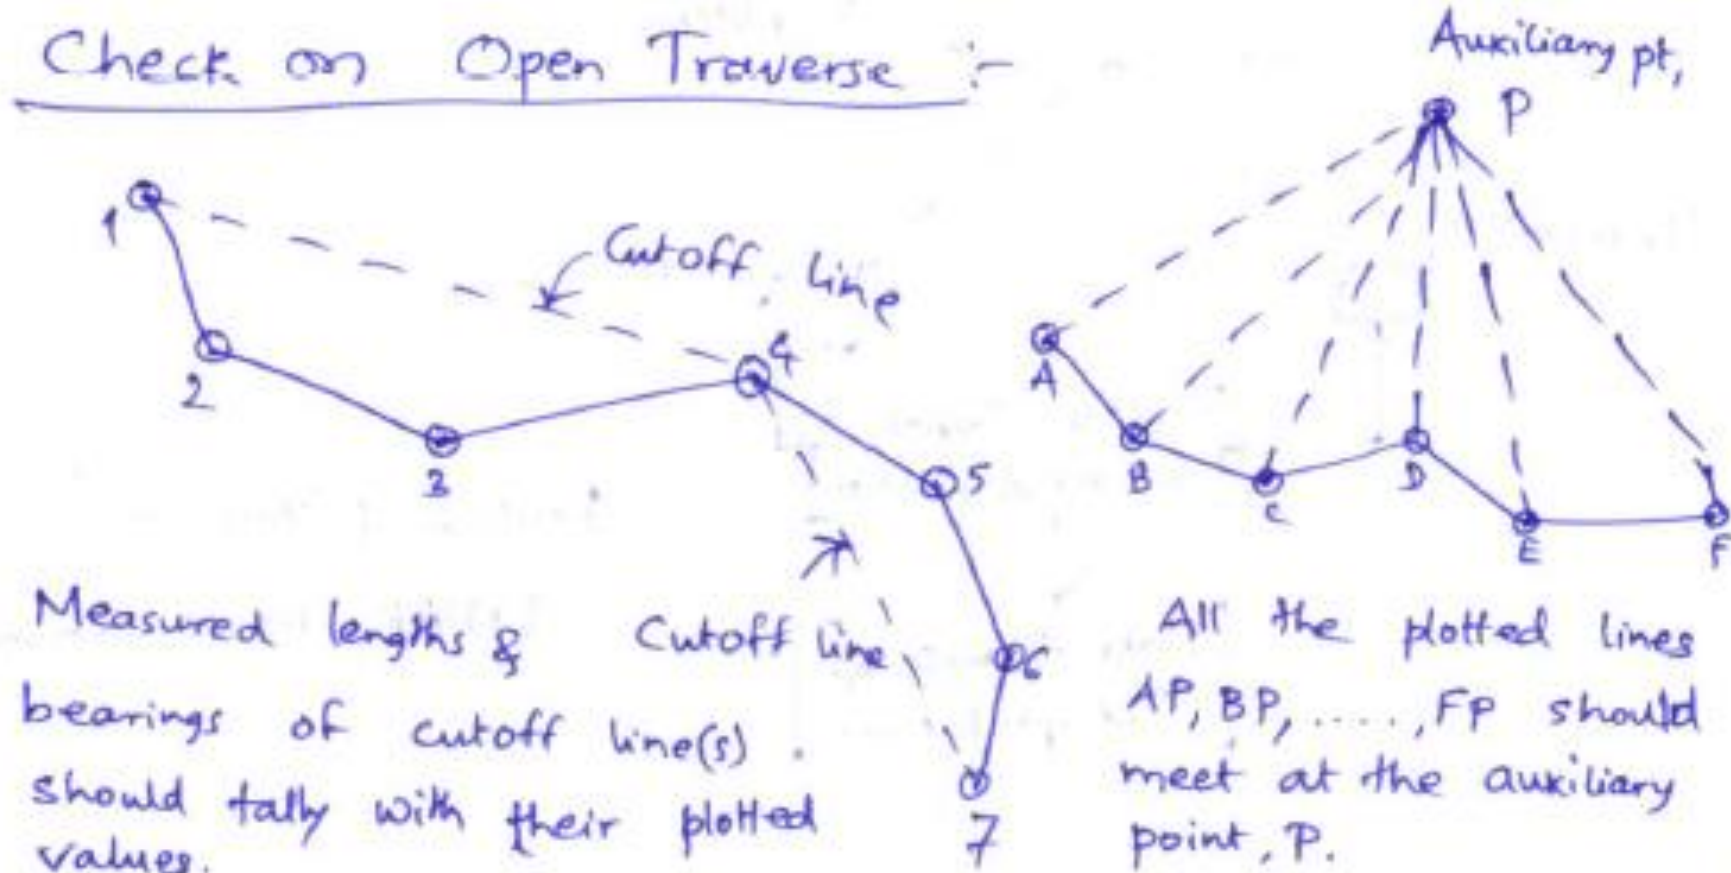 Check on Open Traverse :-
1
2
3
4
5
6
7
Cutoff line
Cutoff line
Measured lengths &
bearings of cutoff line(s)
should tally with their plotted
values.
Auxiliary pt,
P
A
B
C
D
E
F
All the plotted lines
AP, BP, ....., FP should
meet at the auxiliary
point, P.